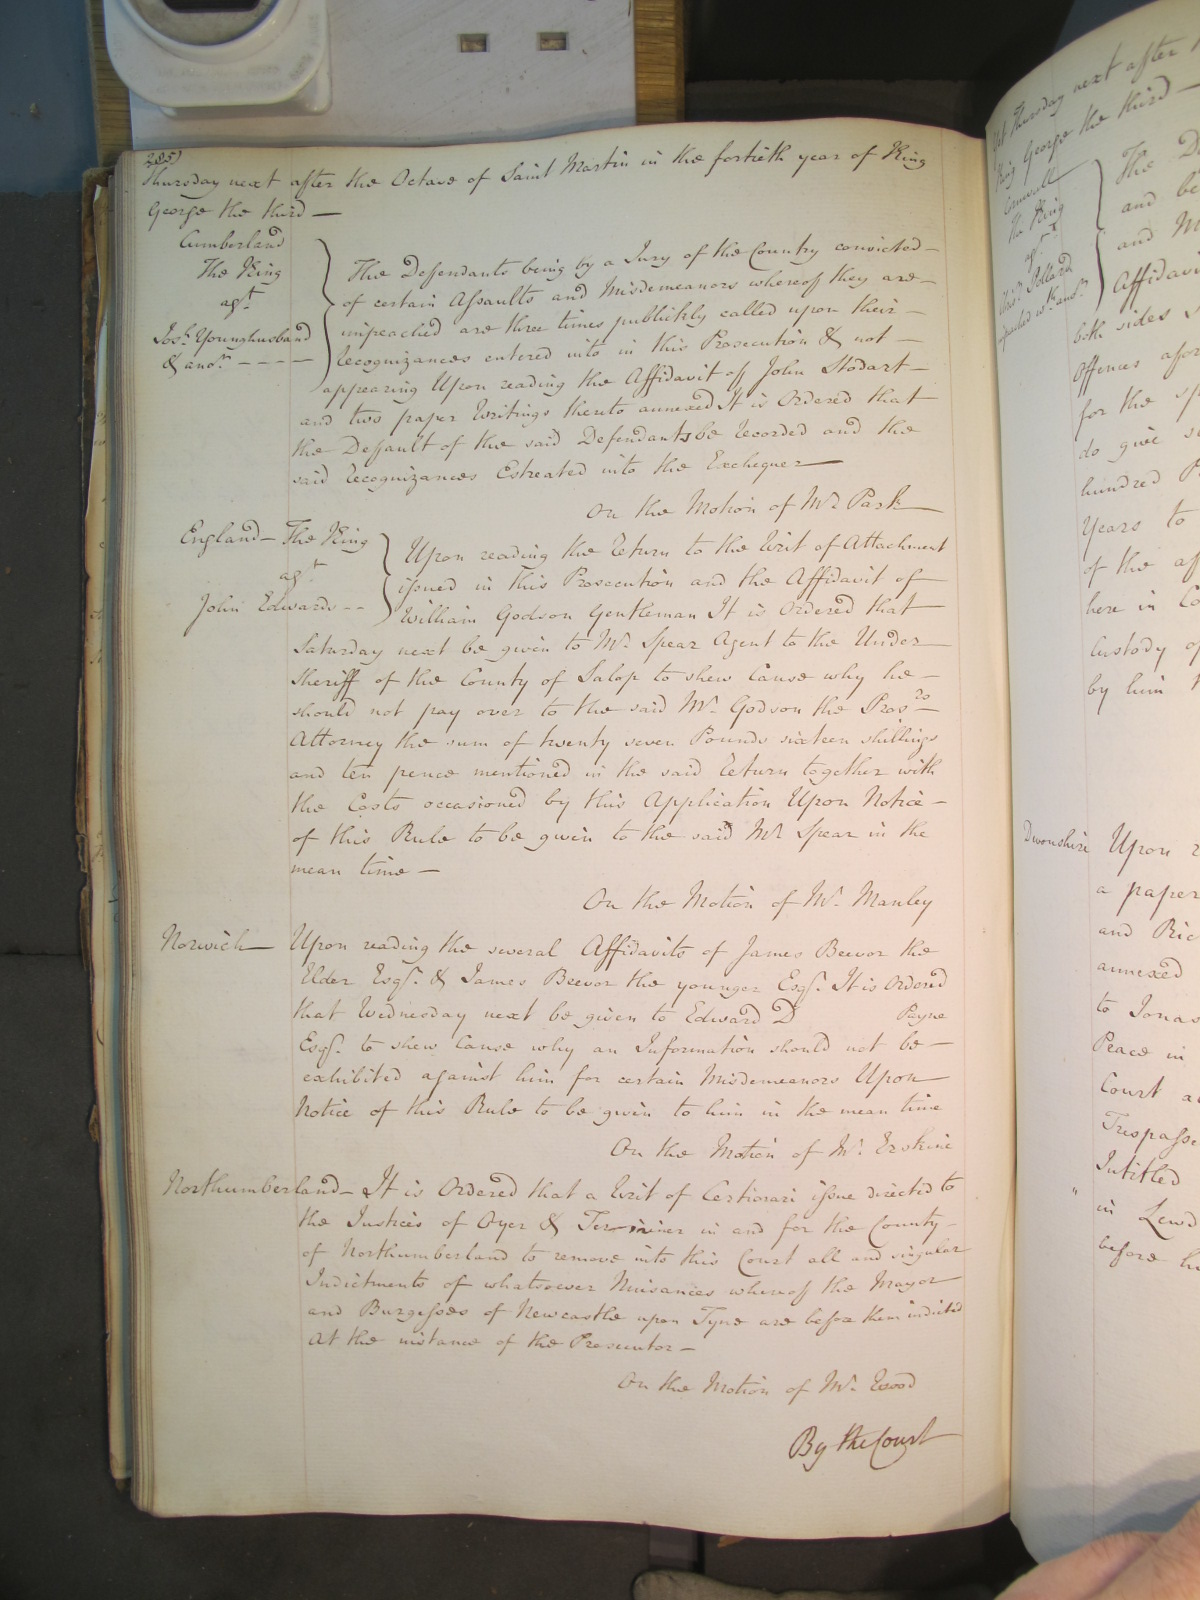 285)
Thursday next after the Octave of Saint Martin in the fortieth year of King
George the third —
Cumberland
The King
agt
Josh. Younghusband
& anor. - - - -
The Defendants being by a Jury of the Country convicted —
of certain Assaults and Misdemeanors whereof they are —
impeached are three times publickly called upon their —
Recognizances entered into in this Prosecution & not —
appearing Upon reading the Affidavit of John Stodart —
and two paper Writings thereto annexed It is Ordered that
the Default of the said Defendants be Recorded and the
said Recognizances Estreated into the Exchequer —
On the Motion of Mr. Park —
England — The King
agt
John Edwards - -
Upon reading the Return to the Writ of Attachment
issued in this Prosecution and the Affidavit of
William Godson Gentleman It is Ordered that
Saturday next be given to Mr. Spear Agent to the Under
Sheriff of the County of Salop to shew Cause why he —
should not pay over to the said Mr. Godson the Prosrs
Attorney the sum of twenty seven Pounds sixteen shillings
and ten pence mentioned in the said Return together with
the Costs occasioned by this Application Upon Notice —
of this Rule to be given to the said Mr. Spear in the
mean time —
On the Motion of Mr. Manley
Norwich — Upon reading the several Affidavits of James Beevor the
Elder Esqr. & James Beevor the younger Esqr. It is Ordered
that Wednesday next be given to Edward D Payne
Esqr. to shew Cause why an Information should not be —
exhibited against him for certain Misdemeanors Upon
Notice of this Rule to be given to him in the mean time
On the Motion of Mr. Erskine
Northumberland — It is Ordered that a Writ of Certiorari issue directed to
the Justices of Oyer & Terminer in and for the County —
of Northumberland to remove into this Court all and singular
Indictments of whatsoever Nuisances whereof the Mayor
and Burgesses of Newcastle upon Tyne are before them indicted
At the instance of the Prosecutor —
On the Motion of Mr. Wood
By the Court
Thursday next after
King George the third —
Cornwall
The King
agt
Pollard
The
and be
and M
Affidavi
both sides
Offences afor
for the sp
do give
hundred P
Years to
of the af
here in Co
Custody of
by him
Devonshire Upon
a paper
and Ric
annexed
to Jonas
Peace in
Court a
Trespasse
Intitled
in Lewd
before h